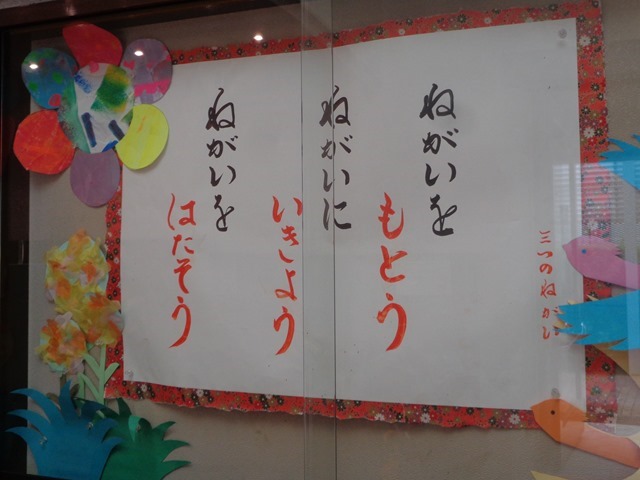 三つのねがい
ねがいを
もとう
ねがいに
いきよう
ねがいを
はたそう